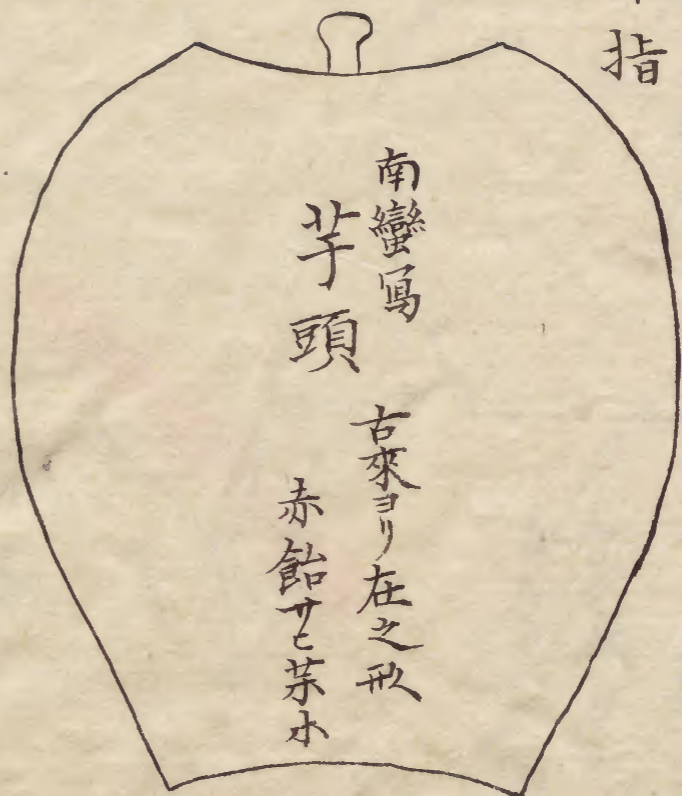 指
南蠻寫
芋頭
古來ヨリ在之形
赤飴サヒ茶